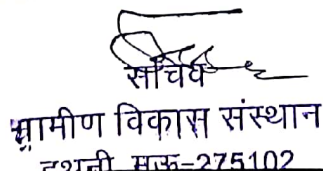 सचिव
ग्रामीण विकास संस्थान
मऊ-275102